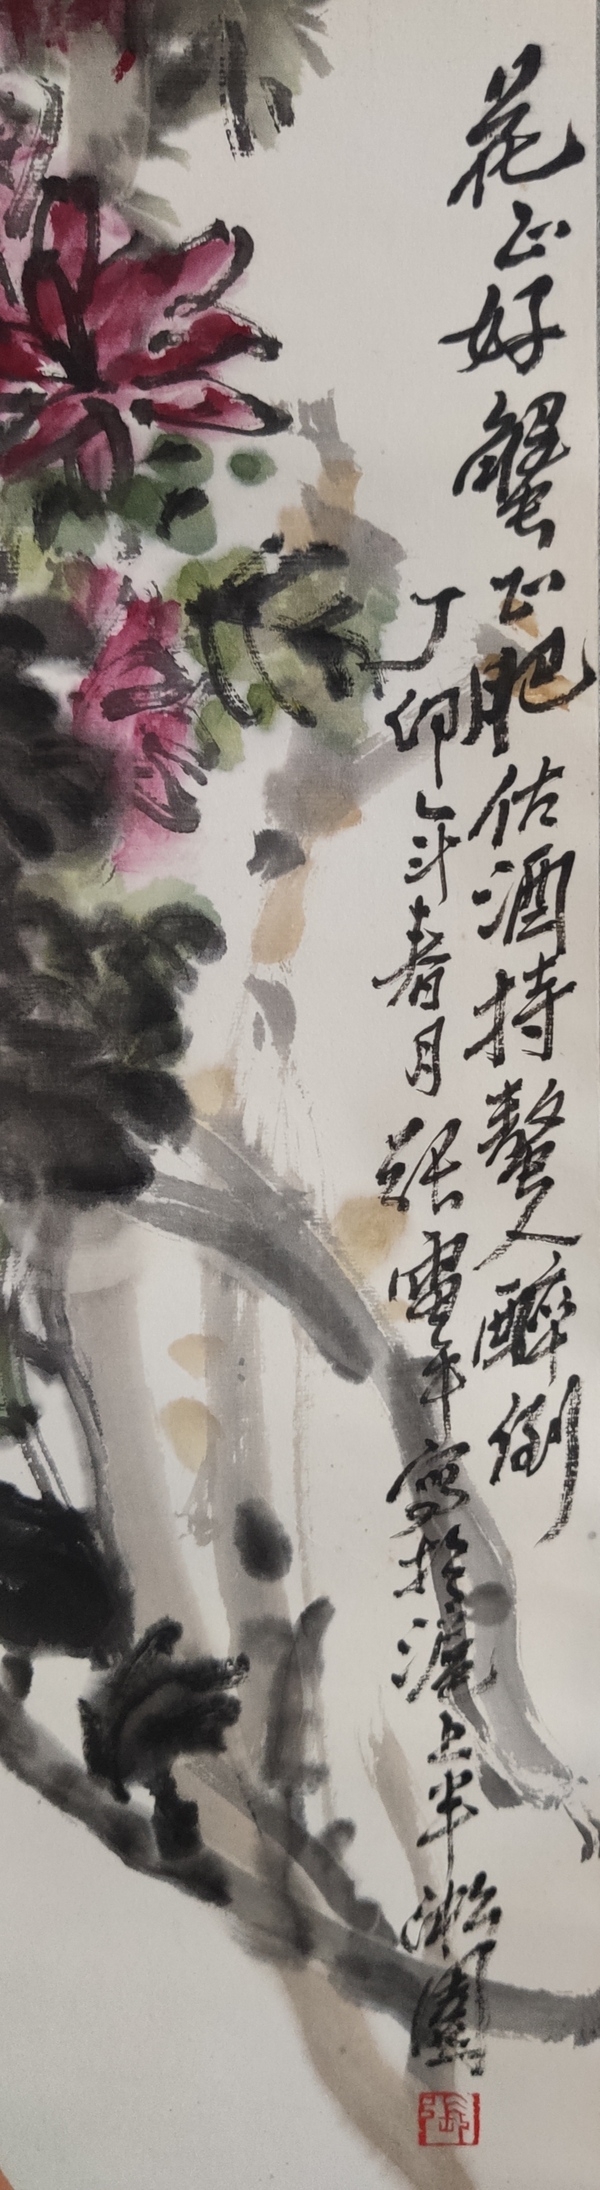 花正好蟹正肥估酒持螯人醉倒
丁卯年春月张雷平写於沪上半淞园
张